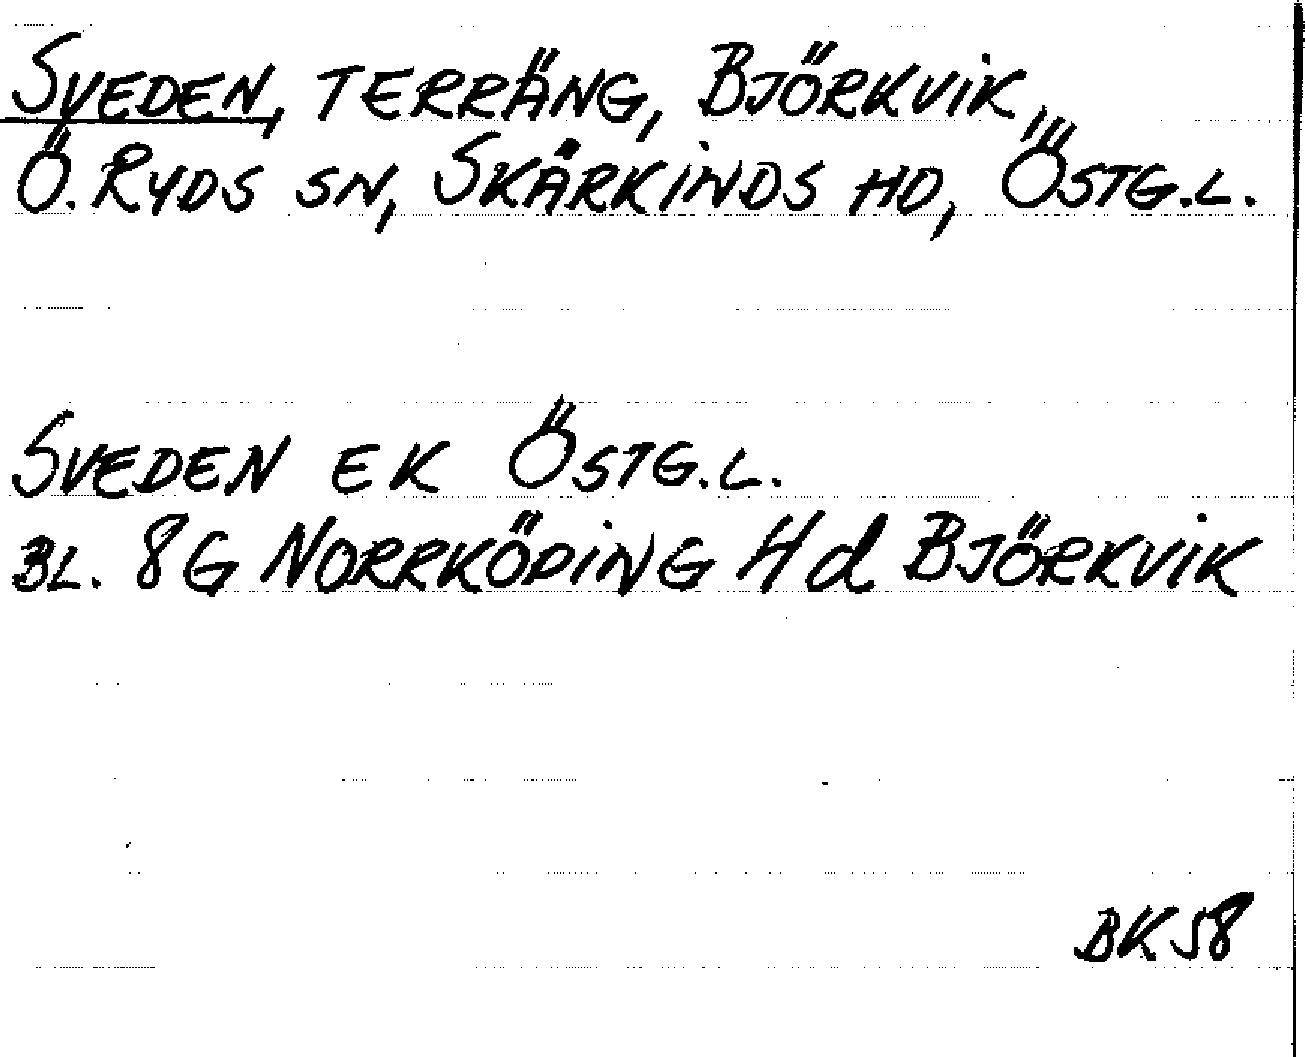 SVEDEN, TERRÄNG, BJÖRKVIK,
Ö. RYDS SN, SKÄRKINDS HD, ÖSTG.L.
SVEDEN EK ÖSTG.L.
BL. 8G NORRKÖPING 4d BJÖRKVIK
BK58